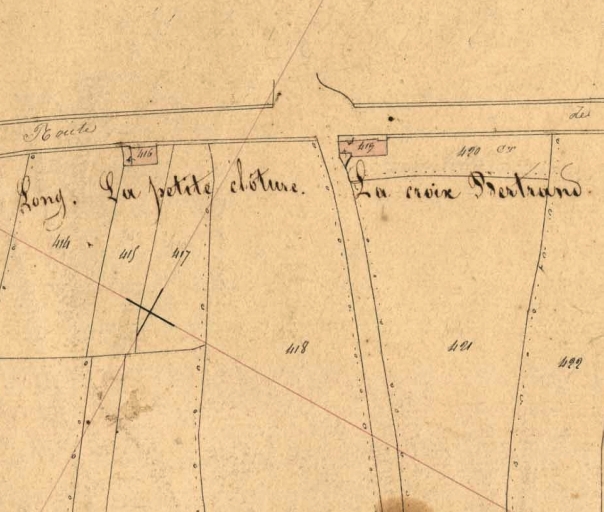 Route de
416 419 420
Long. La petite clôture. La croix Bertrand.
414 415 417
418 421 422